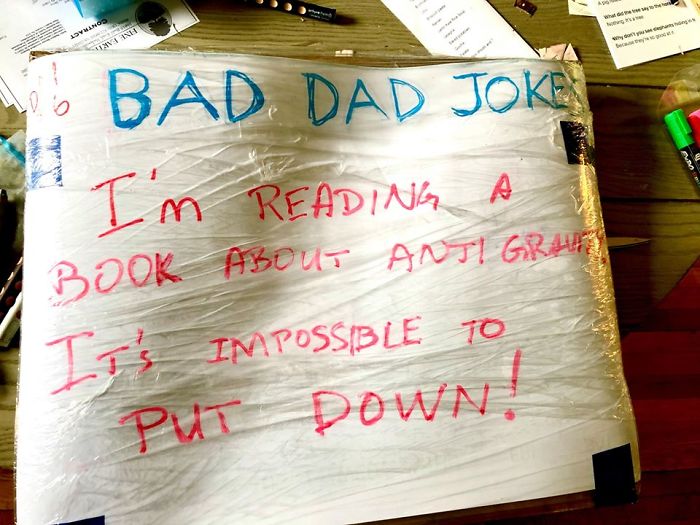 CONTRACT
What did the tree say to the
Nothing. It's a tree
Why don't you see elephants hiding
Because they're so good at it
BAD DAD JOKE
I'm READING A
BOOK ABOUT ANTI GRAVITY.
IT'S IMPOSSIBLE TO
PUT DOWN!